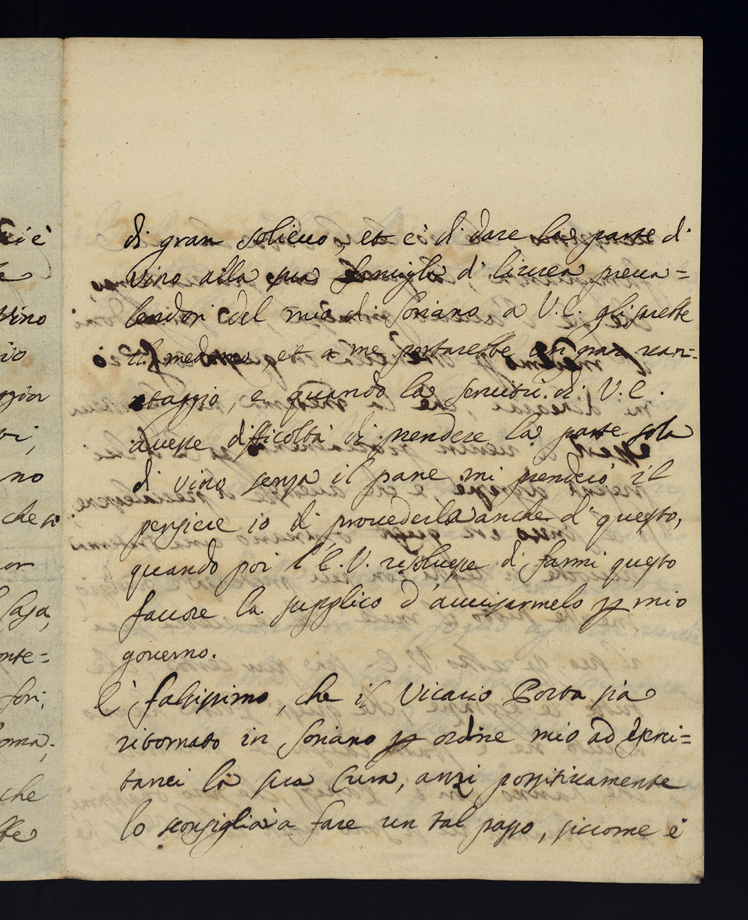 di gran solievo, et è di dare la parte di
Vino alla sua famiglia di livrea preva=
lendosi del mio di Soriano a V.E. gli sarette
il medemo, et a me portarebbe un gran van=
taggio, e quando la servitù di V.E.
avesse difficoltà di prendere la parte sola
di vino senza il pane mi prendeò il
pensiere io di provederla anche di questo,
quando poi l'E.V. risoluesse di farmi questo
favore la supplico d'avvisarmelo p mio
governo.
È falsissimo, che il Vicario Porta sia
ritornato in Soriano p ordine mio ad eserci=
tarci la sua Cura, anzi positivamente
lo sconsigliai a fare un tal passo, siccome è
che
Vino
no
che
or
Casa,